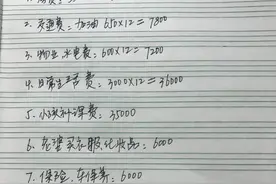 2. 交通费：加油 650×12=7800
3. 物业水电费：600×12=7200
4. 日常生活费：3000×12=36000
5. 小孩补课费：35000
6. 老婆买衣服、化妆品：6000
7. 保险、车保养：6000